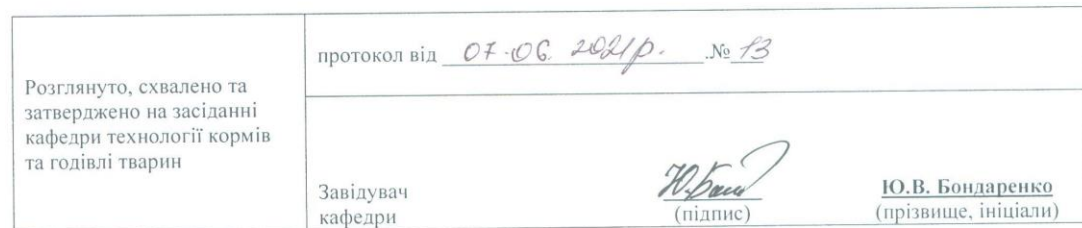 Розглянуто, схвалено та
затверджено на засіданні
кафедри технології кормів
та годівлі тварин
протокол від 07.06.2021р. № 13
Завідувач
кафедри
Ю.Бонд
(підпис)
Ю.В. Бондаренко
(прізвище, ініціали)